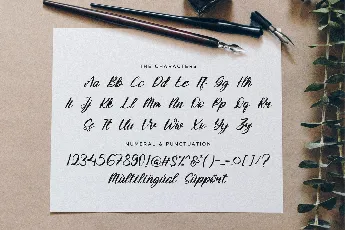 THE CHARACTERS
Aa Bb Cc Dd Ee Ff Gg Hh
Ii Jj Kk Ll Mm Nn Oo Pp Qq Rr
Ss Tt Uu Vv Ww Xx Yy Zz
NUMERAL & PUNCTUATION
1234567890!@#$%&*()-_=[]/?
Multilingual Support